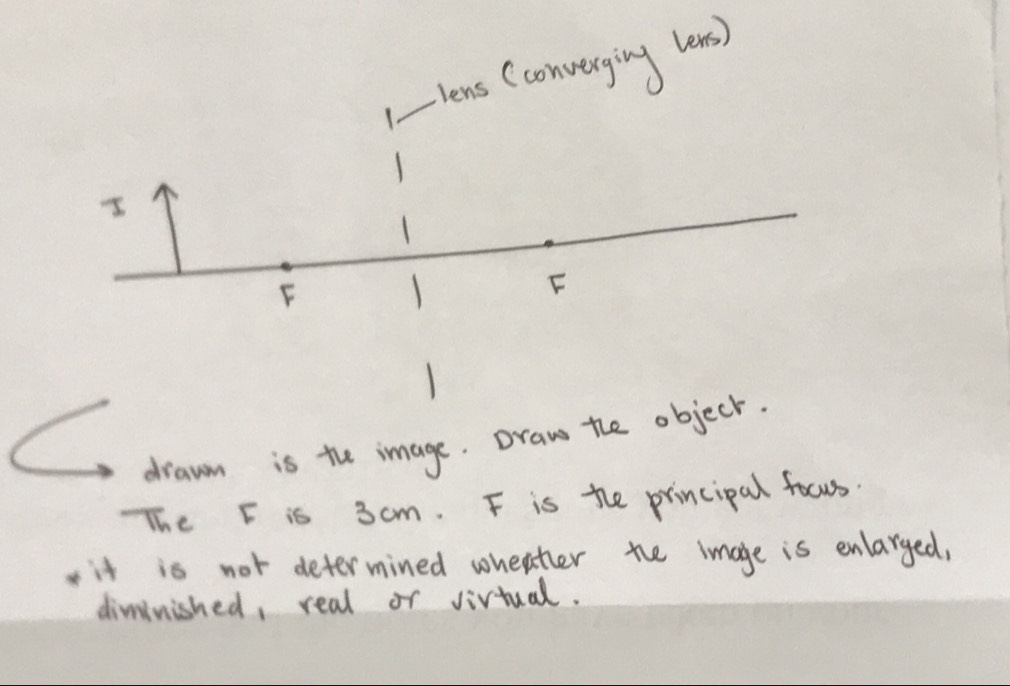 lens (converging lens)
I
F
F
drawn is the image. Draw the object.
The F is 3cm. F is the principal focus.
*it is not determined wheather the image is enlarged,
diminished, real or virtual.